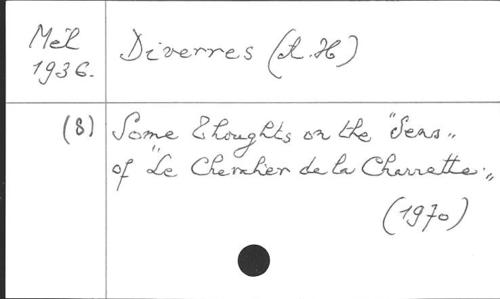 Mél
1936.
Diverres (A. H)
(8)
Some Thoughts on the "Sens"
of "Le Chevalier de la Charrette"
(1970)